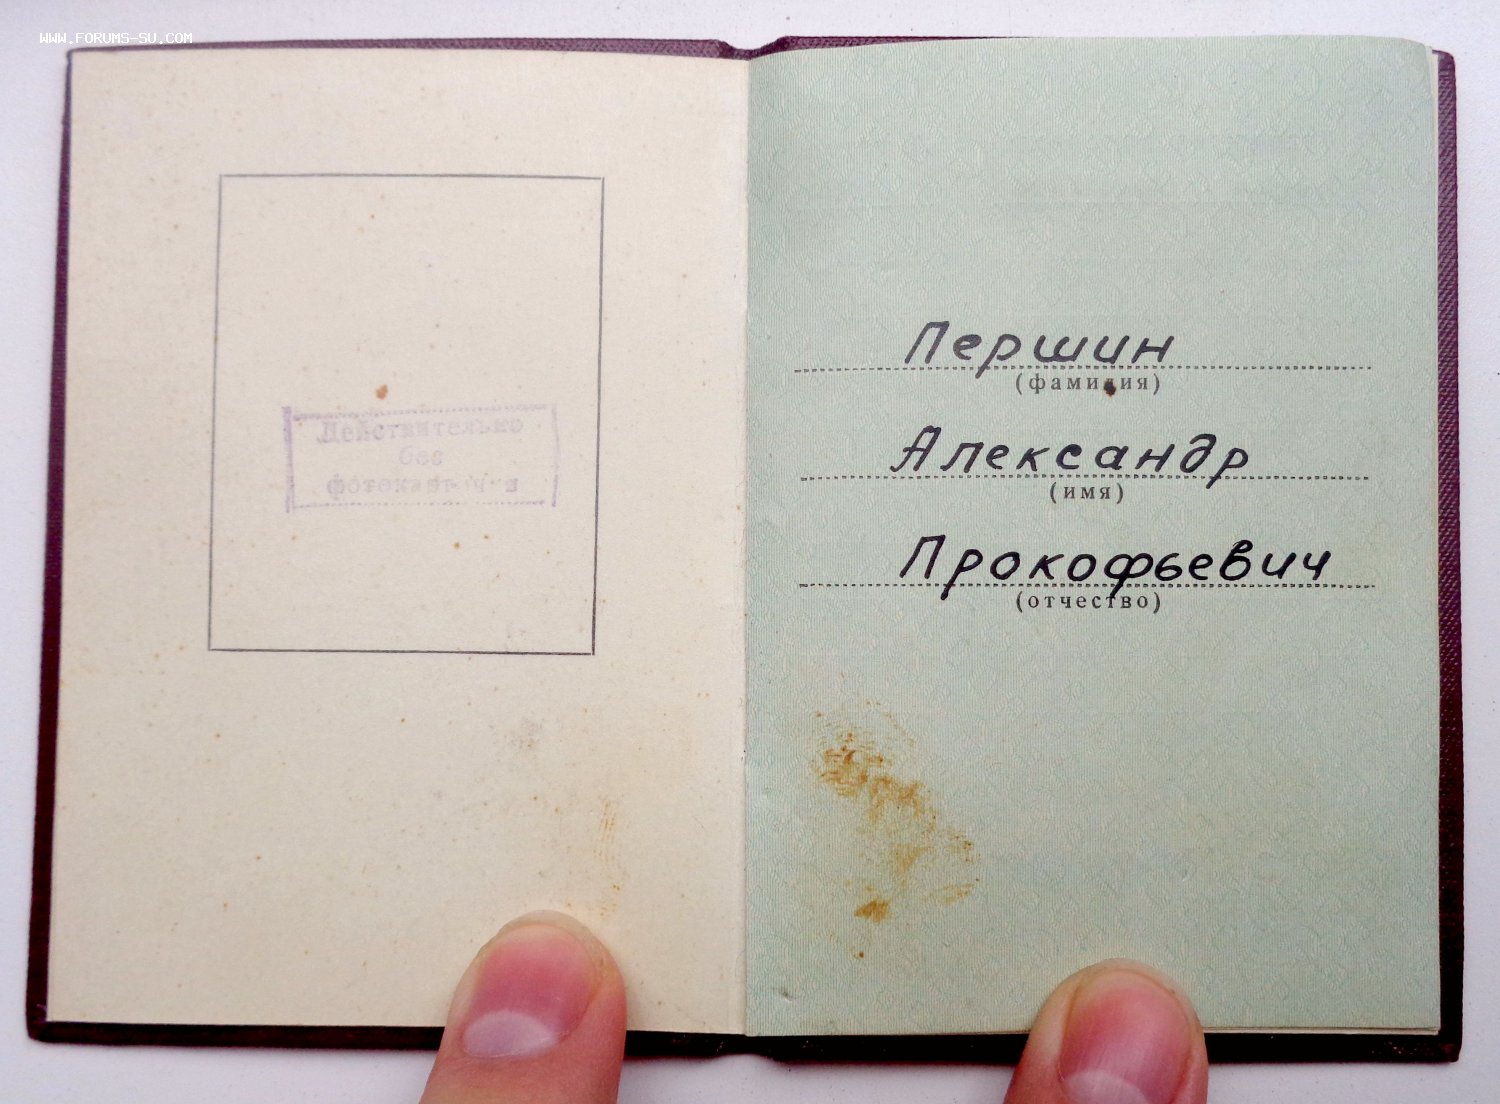 WWW.FORUMS-SU.COM
Действительно
без
Першин
(фамилия)
Александр
(имя)
Прокофьевич
(отчество)